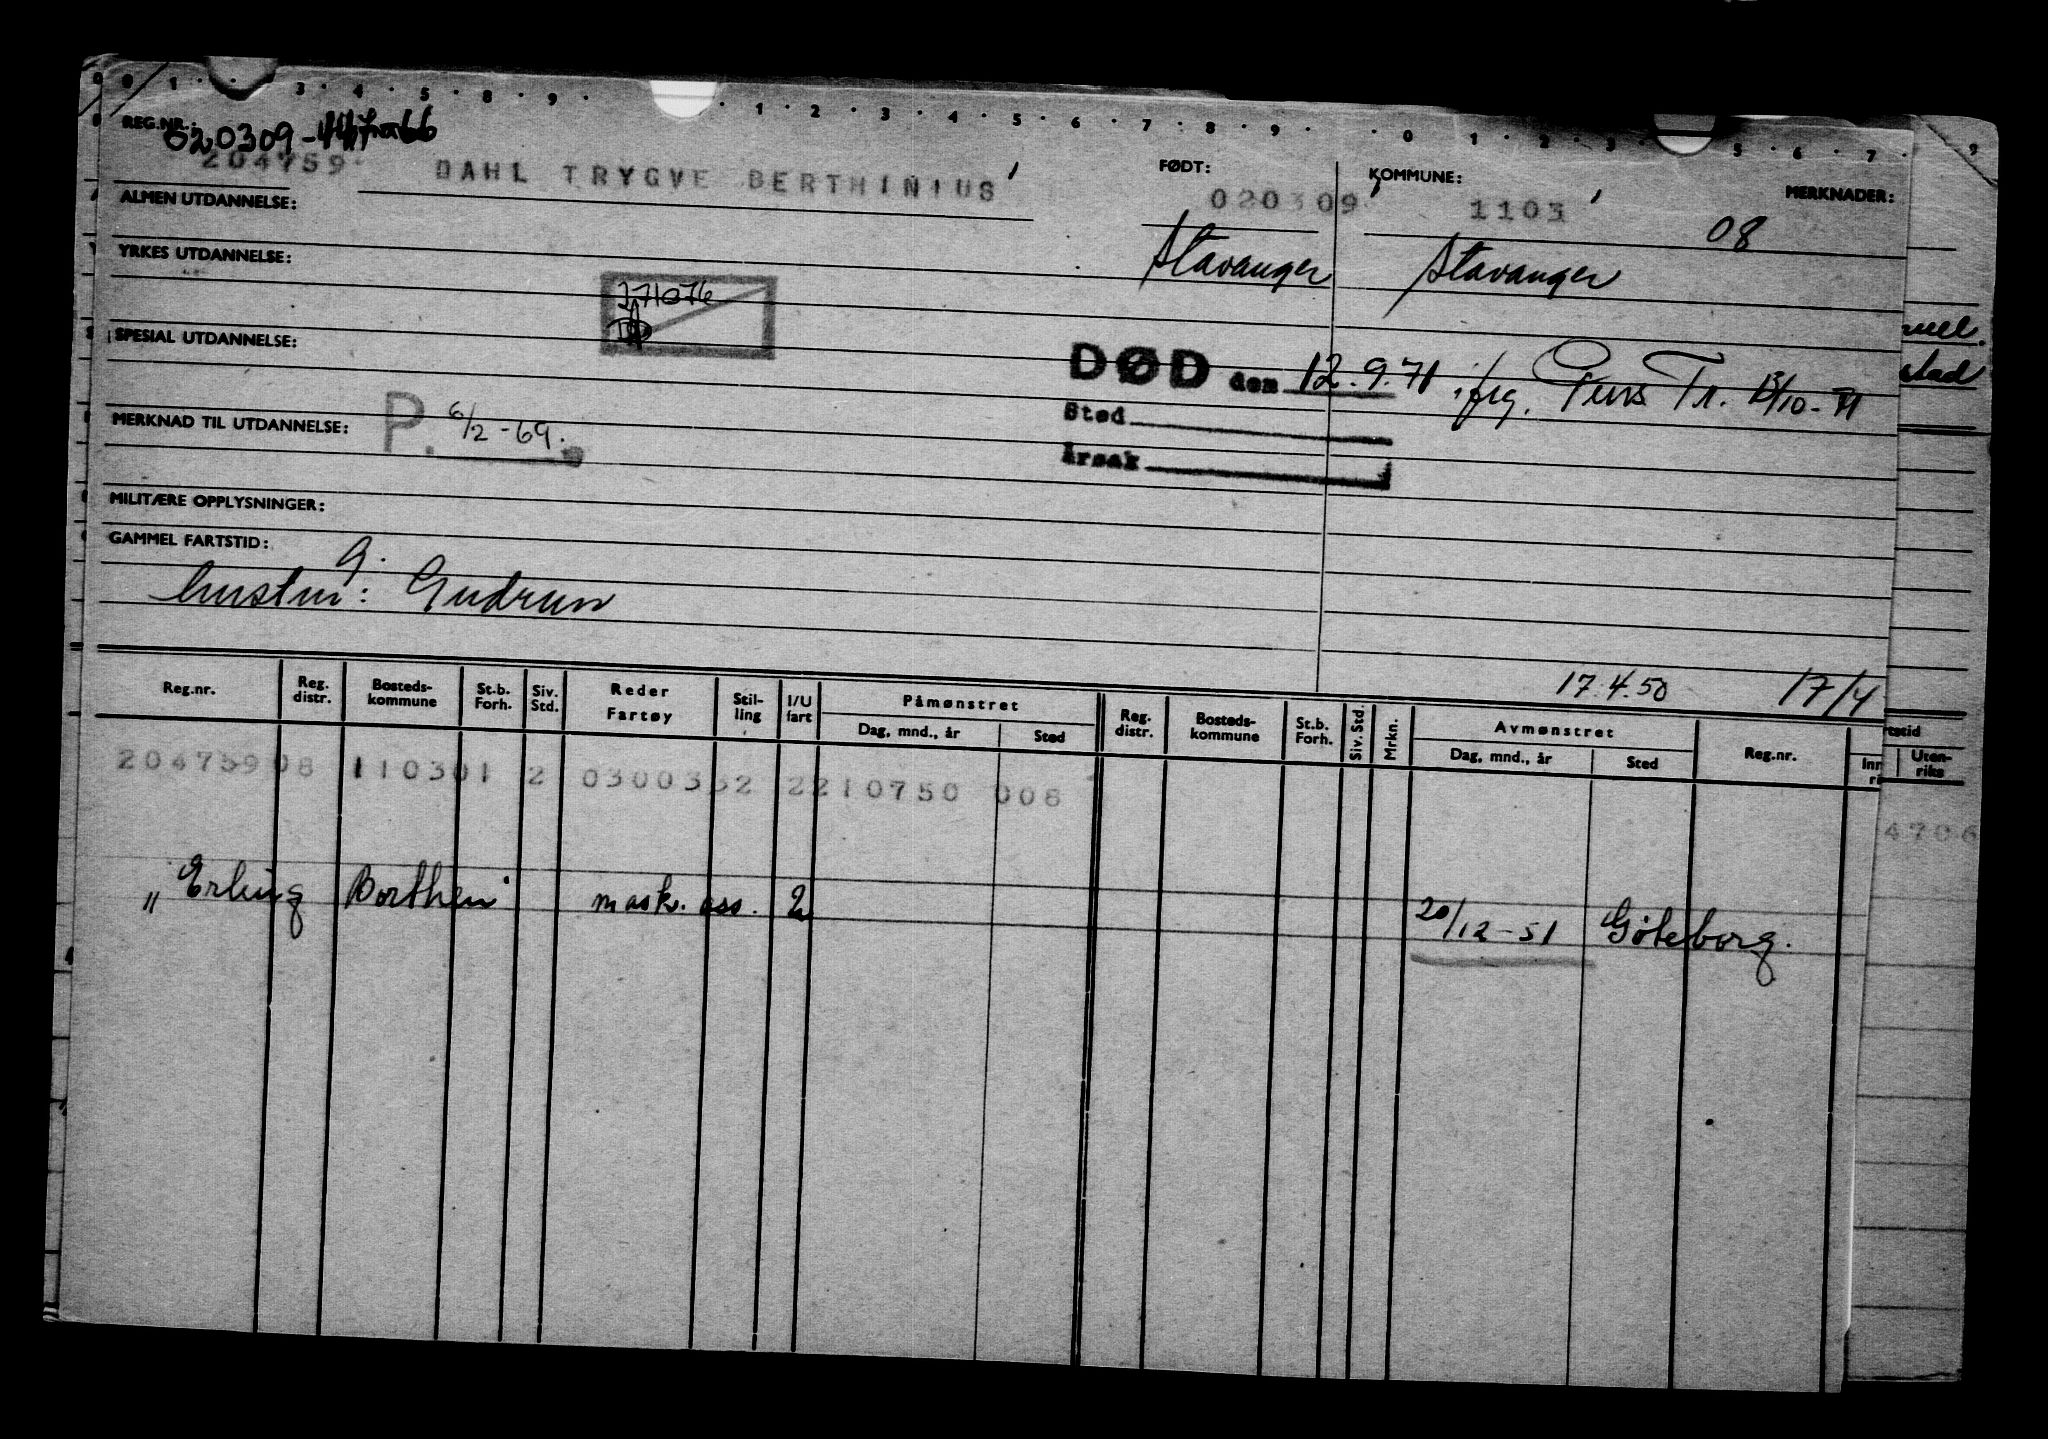 0 1 3 4 5 8 9 1 2 3 4 5 6 7 8 9 0 1 2 3 5 6 7 9
REG.NR.: 020309-
204759 DAHL TRYGVE BERTHINIUS FØDT: 020309 KOMMUNE: 1103 MERKNADER:
ALMEN UTDANNELSE: 08
Stavanger Stavanger
YRKES UTDANNELSE:
271076
SPESIAL UTDANNELSE:
DØD den 12.9.71 jfrg. Pens. Tr. 13/10-71
Sted
Årsak
MERKNAD TIL UTDANNELSE: P. 6/2-69.
MILITÆRE OPPLYSNINGER:
GAMMEL FARTSTID:
G.
hustru: Gudrun
17.4.50 17/4
Reg.nr. Reg. distr. Bosteds-kommune St.b. Forh. Siv. Std. Reder Fartøy Stil-ling I/U fart Påmønstret Dag, mnd., år Sted Reg. distr. Bosteds-kommune St.b. Forh. Siv. Std. Mrkn. Avmønstret Dag, mnd., år Sted Reg.nr. Inn ri Uten-riks
204759 08 110301 2 03003 2 2210750 008
4706
" Erling Borthen" mask. ass. 2 20/12-51 Göteborg.